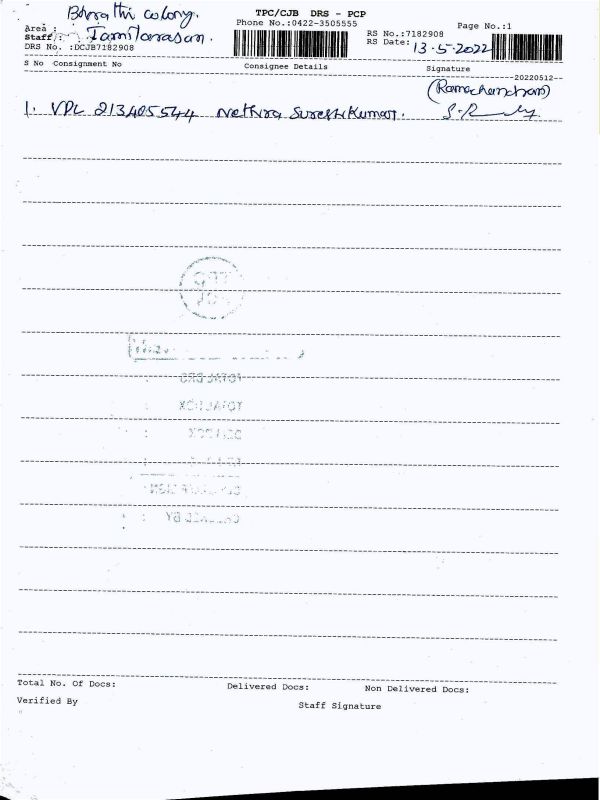 Bharathi colony.
TPC/CJB DRS - PCP
Area :
Phone No.:0422-3505555
Page No.:1
Staff : Tamilarasan.
RS No.:7182908
DRS No. :DCJB7182908
RS Date: 13-5-2022
S No Consignment No Consignee Details Signature
20220512
(Ramachandran)
1. VPL 213405544 Nethra Sureshkumar.
TOTAL DRS :
TOTAL DOX :
CHECKED BY :
Total No. Of Docs: Delivered Docs: Non Delivered Docs:
Verified By Staff Signature